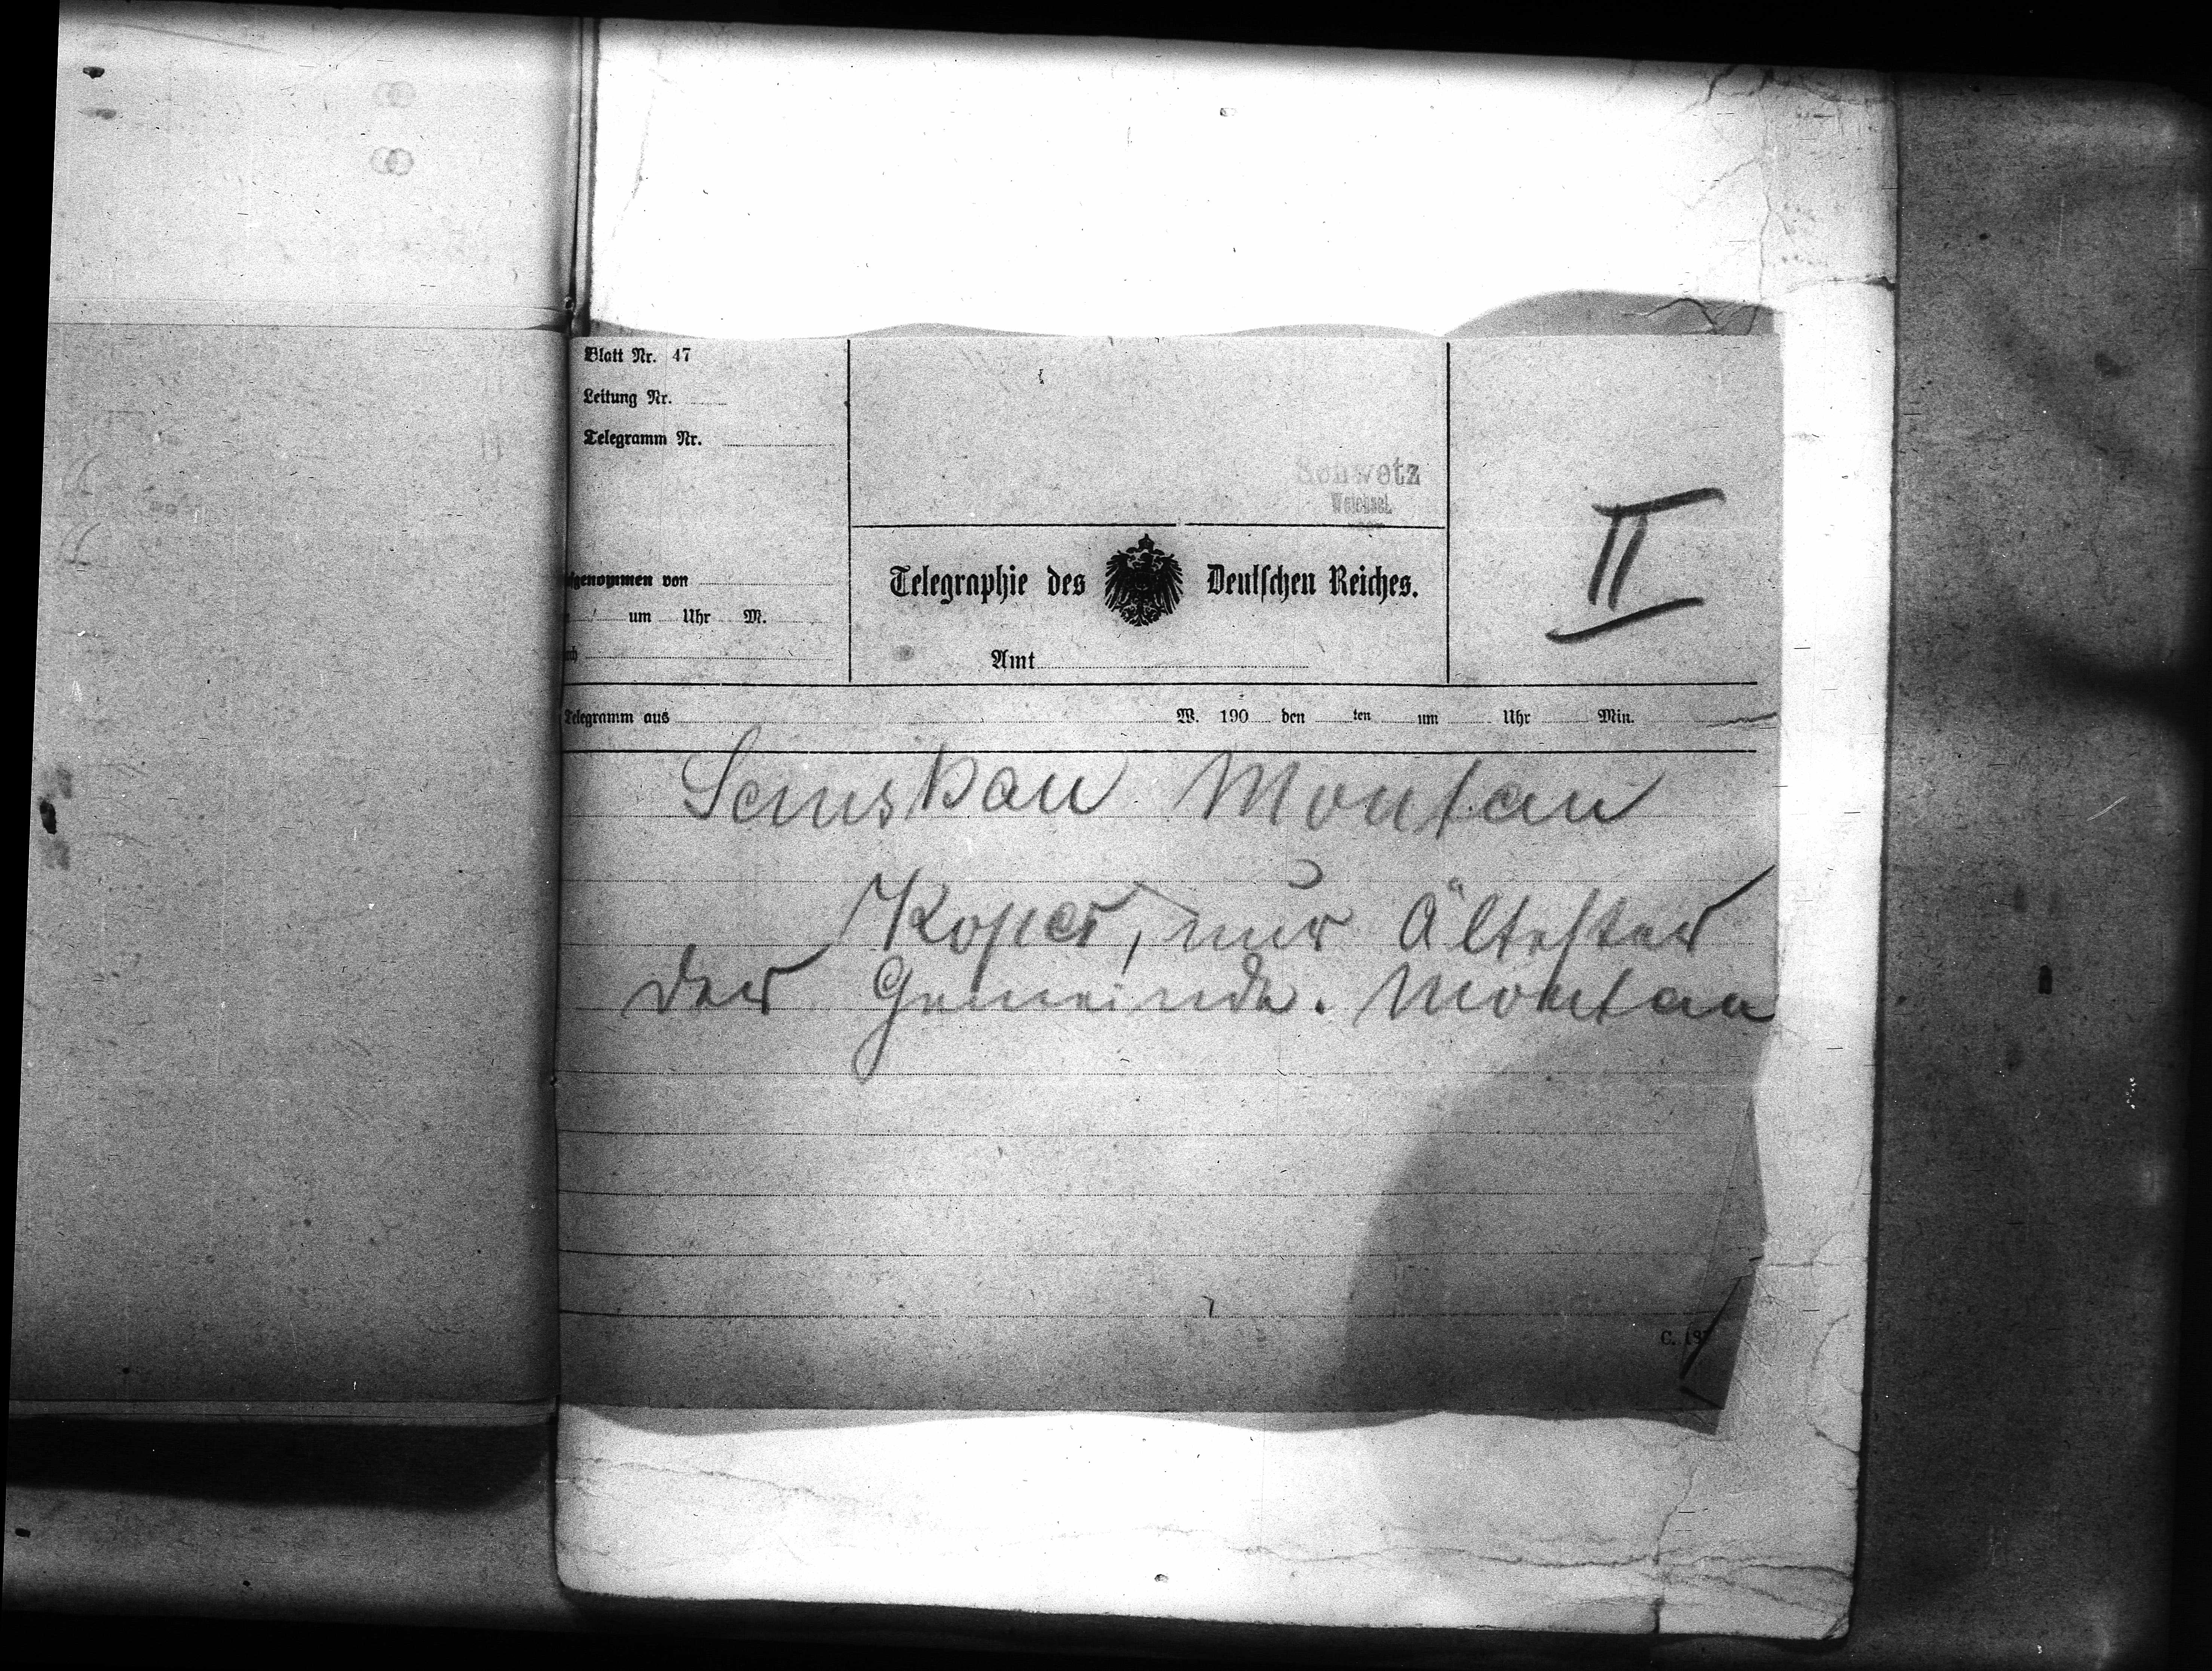 Blatt Nr. 47
Leitung Nr.
Telegramm Nr.
Schwetz
Weichsel
II
genommen von
um Uhr M.
Telegraphie des Deutschen Reiches.
Amt
Telegramm aus W. 190 den ten um Uhr Min.
Sanskau Montau
Koper, nur Ältester
der Gemeinde. Montau
C. 187